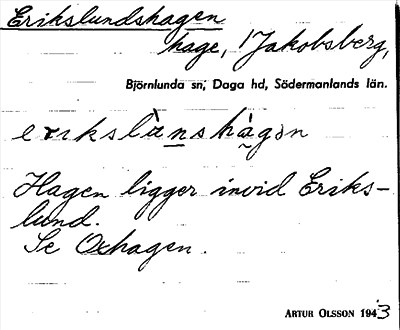 Erikslundshagen
hage, 1 Jakobsberg,
Björnlunda sn; Daga hd, Södermanlands län.
erikslànshàgən
Hagen ligger invid Eriks-
lund.
Se Oxhagen.
ARTUR OLSSON 1943